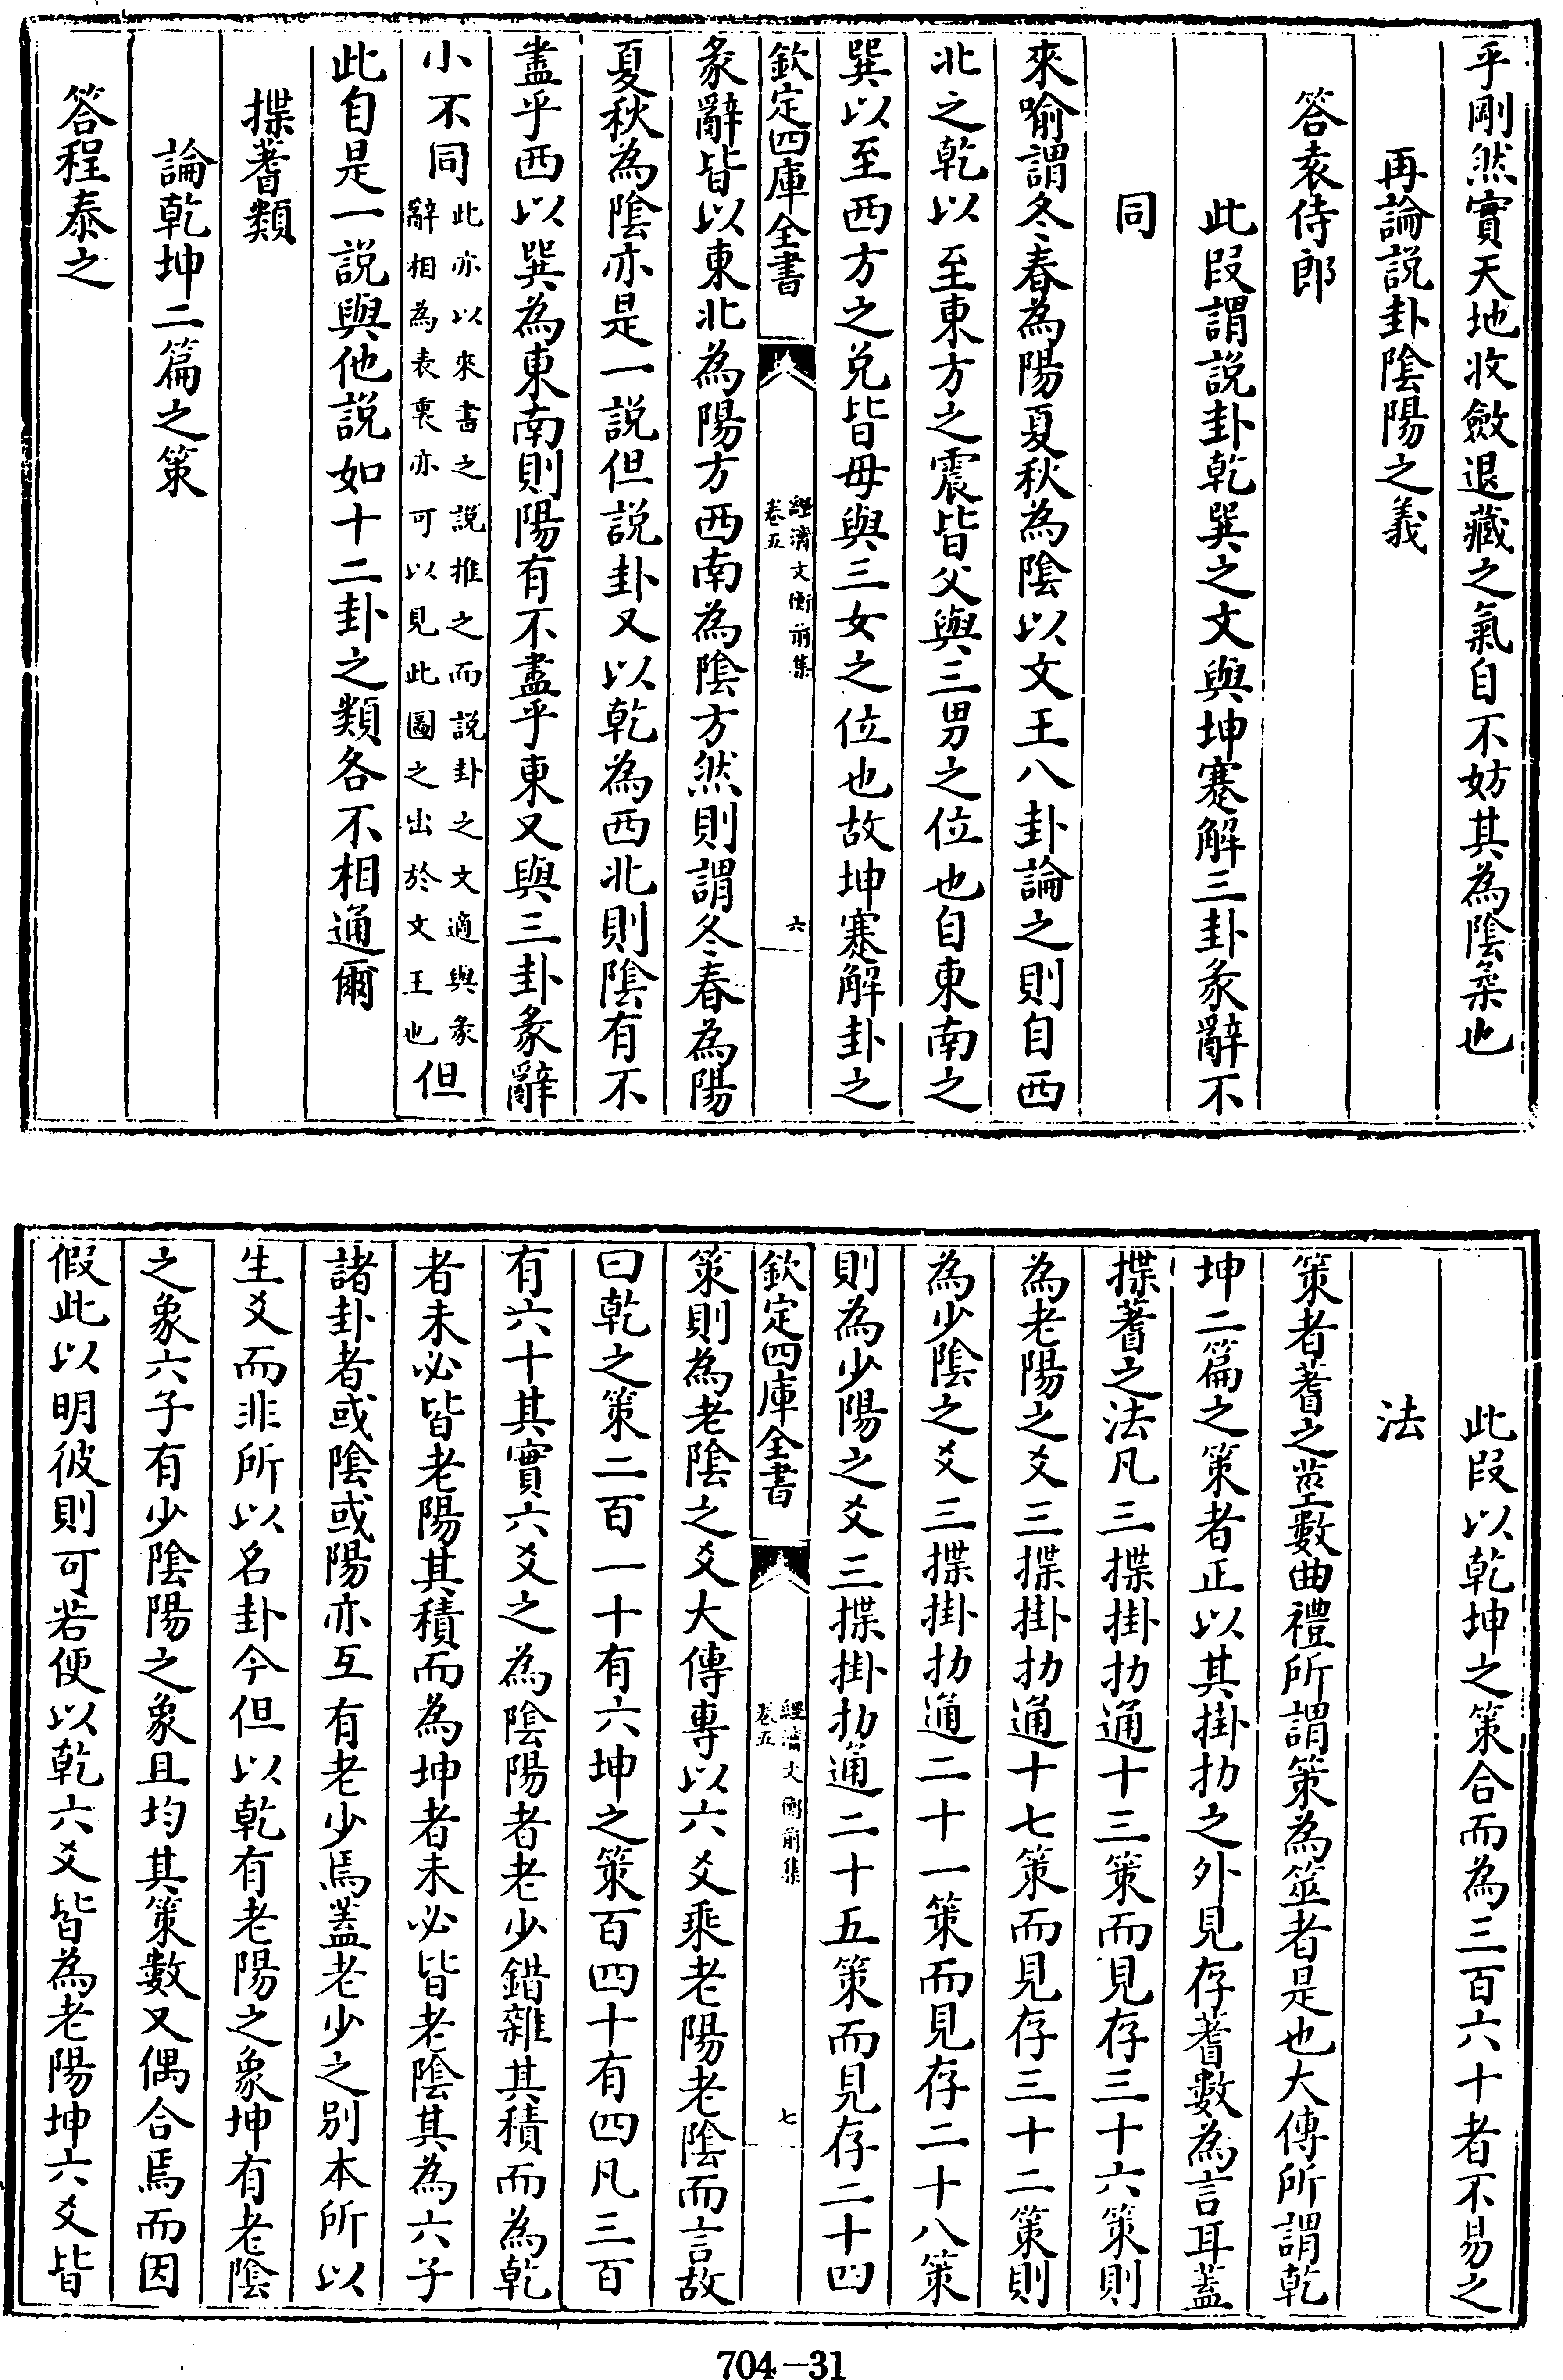 乎剛然實天地收斂退藏之氣自不妨其為陰柔也
再論說卦陰陽之義
答袁侍郎
此段謂說卦乾巽之文與坤蹇解三卦彖辭不
同
來喻謂冬春為陽夏秋為陰以文王八卦論之則自西
北之乾以至東方之震皆父與三男之位也自東南之
巽以至西方之兌皆母與三女之位也故坤蹇解卦之
欽定四庫全書
經濟文衡前集
卷五
六
彖辭皆以東北為陽方西南為陰方然則謂冬春為陽
夏秋為陰亦是一說但說卦又以乾為西北則陰有不
盡乎西以巽為東南則陽有不盡乎東又與三卦彖辭
小不同
此亦以來書之說推之而說卦之文適與彖
辭相為表裏亦可以見此圖之出於文王也
但
此自是一說與他說如十二卦之類各不相通爾
揲蓍類
論乾坤二篇之策
答程泰之
此段以乾坤之策合而為三百六十者不易之
法
策者蓍之莖數曲禮所謂策為筮者是也大傳所謂乾
坤二篇之策者正以其掛扐之外見存蓍數為言耳蓋
揲蓍之法凡三揲掛扐通十三策而見存三十六策則
為老陽之爻三揲掛扐通十七策而見存三十二策則
為少陰之爻三揲掛扐通二十一策而見存二十八策
則為少陽之爻三揲掛扐通二十五策而見存二十四
欽定四庫全書
經濟文衡前集
卷五
七
策則為老陰之爻大傳專以六爻乘老陽老陰而言故
曰乾之策二百一十有六坤之策百四十有四凡三百
有六十其實六爻之為陰陽者老少錯雜其積而為乾
者未必皆老陽其積而為坤者未必皆老陰其為六子
諸卦者或陰或陽亦互有老少焉蓋老少之別本所以
生爻而非所以名卦今但以乾有老陽之象坤有老陰
之象六子有少陰陽之象且均其策數又偶合焉而因
假此以明彼則可若便以乾六爻皆為老陽坤六爻皆
704-31